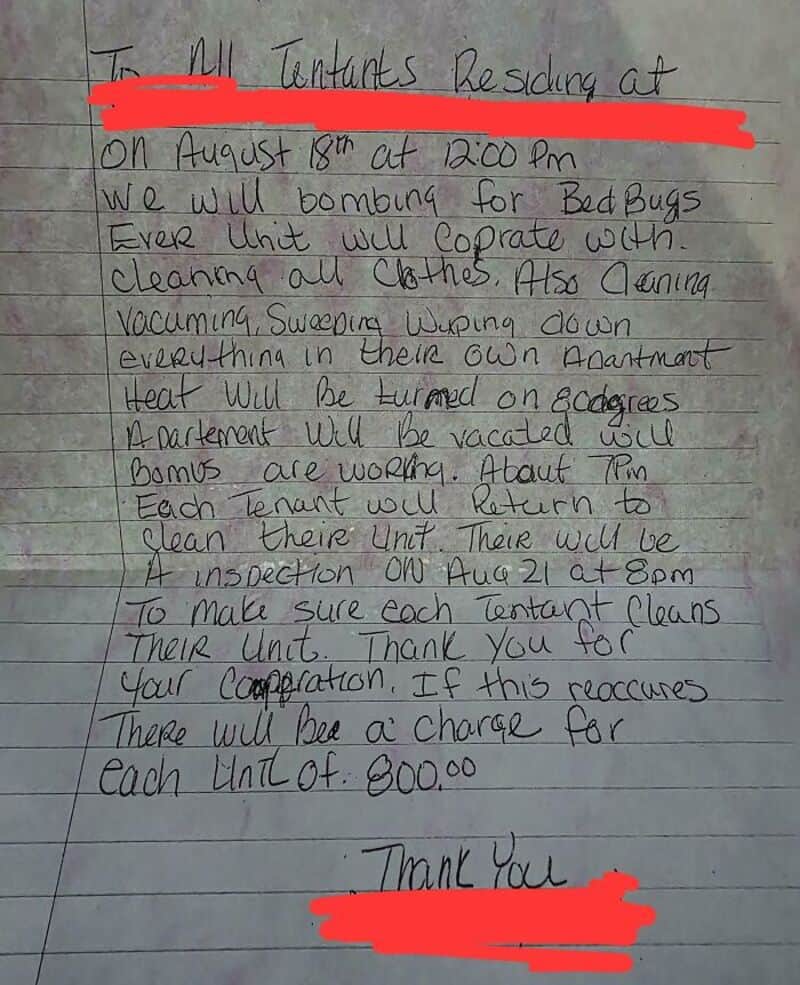 To All Tentants Residing at
on August 18th at 12:00 Pm
We will bombing for Bed Bugs
Ever Unit will Coprate with.
cleaning all Clothes. Also Cleaning
vacuming, Sweeping Wyping down
everything in their own Apantment
Heat Will Be turned on 80degrees
Apartement Will Be vacated will
Bombs are working. About 7Pm
Each Tenant will Return to
clean their Unit. Their will be
A inspection ON Aug 21 at 8pm
To make sure each Tentant Cleans
Their Unit. Thank You for
Your Cooperation. If this reoccures
There will Bee a charge for
each Unit of. 800.00
Thank You